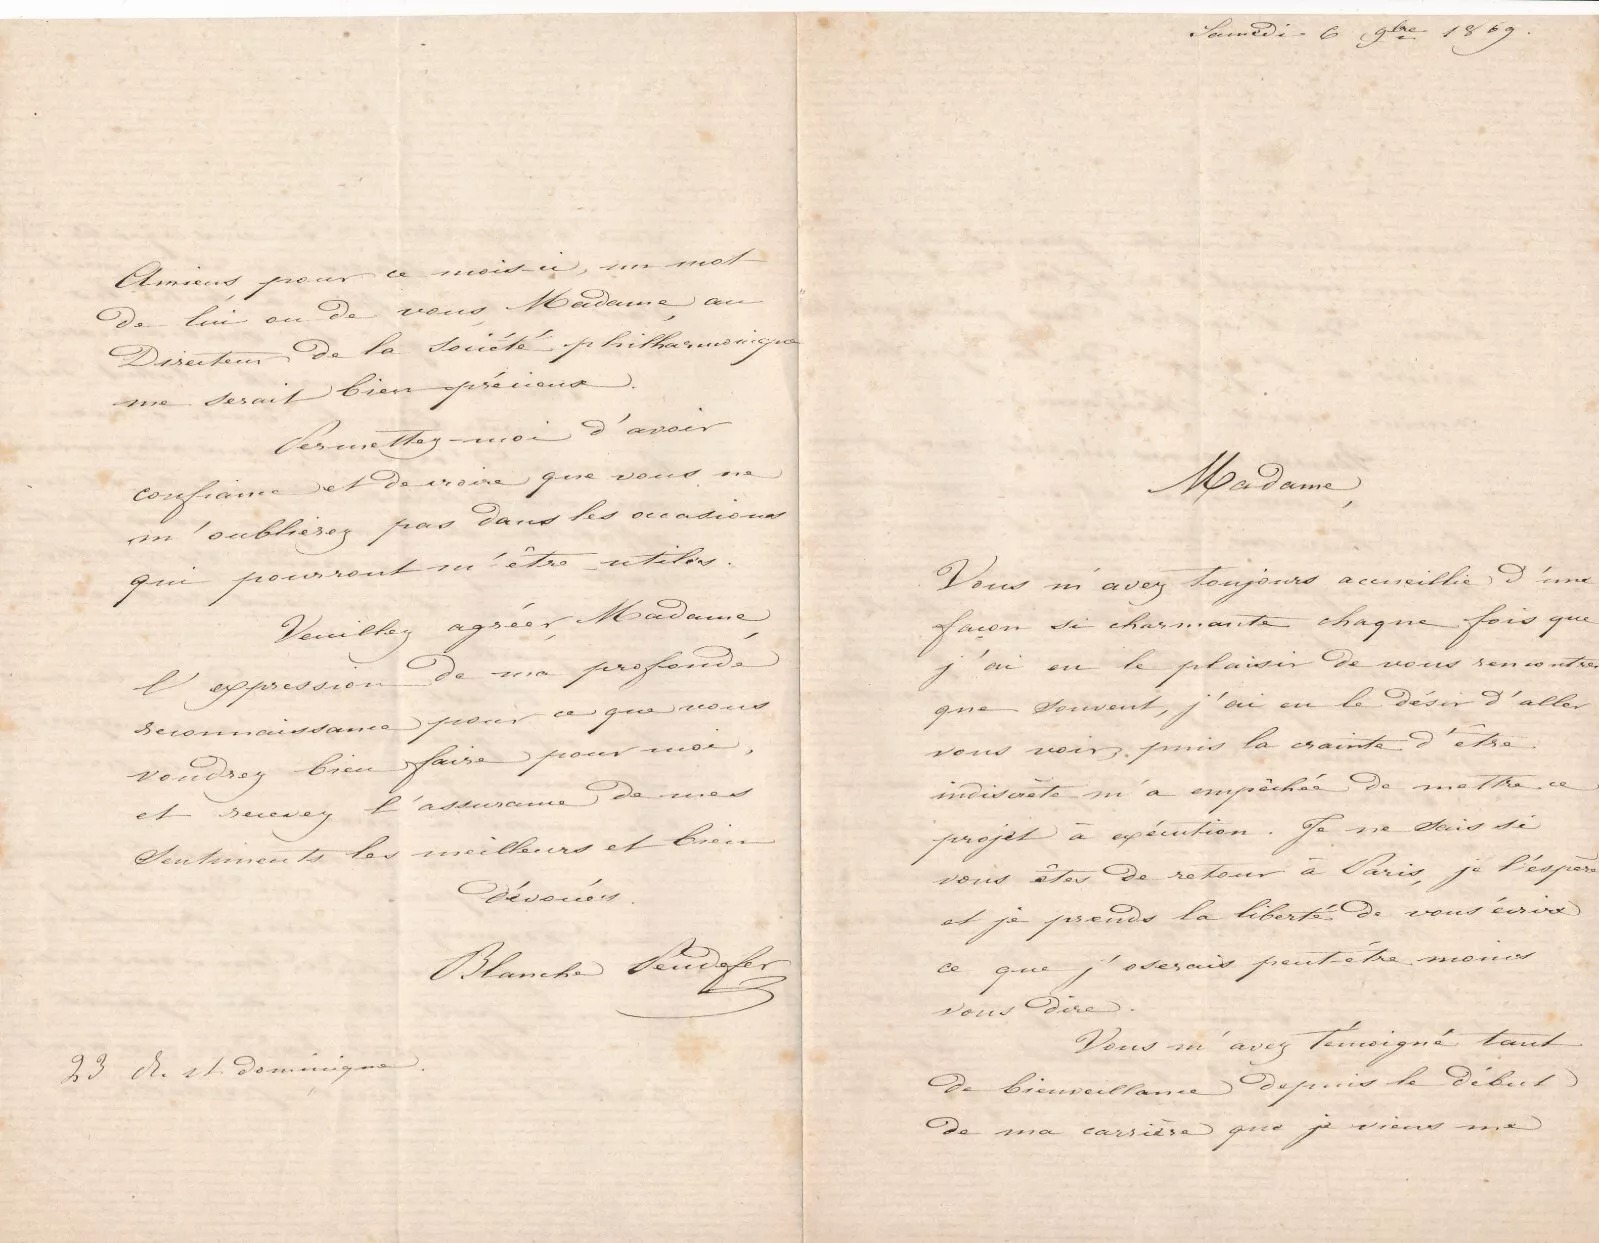 Samedi 6 9bre 1869.
Madame,
Vous m'avez toujours accueillie d'une
façon si charmante chaque fois que
j'ai eu le plaisir de vous rencontrer
que souvent, j'ai eu le désir d'aller
vous voir, puis la crainte d'être
indiscrète m'a empêchée de mettre ce
projet à exécution. Je ne sais si
vous êtes de retour à Paris, je l'espère
et je prends la liberté de vous écrire
ce que j'oserais peut-être moins
vous dire.
Vous m'avez témoigné tant
de bienveillance depuis le début
de ma carrière que je viens me
Amiens, pour ce mois-ci, un mot
de lui ou de vous, Madame, au
Directeur de la société philharmonique
me serait bien précieux.
Permettez-moi d'avoir
confiance et de croire que vous ne
m'oublierez pas dans les occasions
qui pourront m'être utiles.
Veuillez agréer, Madame,
l'expression de ma profonde
reconnaissance pour ce que vous
voudrez bien faire pour moi,
et recevez l'assurance de mes
sentiments les meilleurs et bien
dévoués.
Blanche Peudefer
23 R. st dominique.